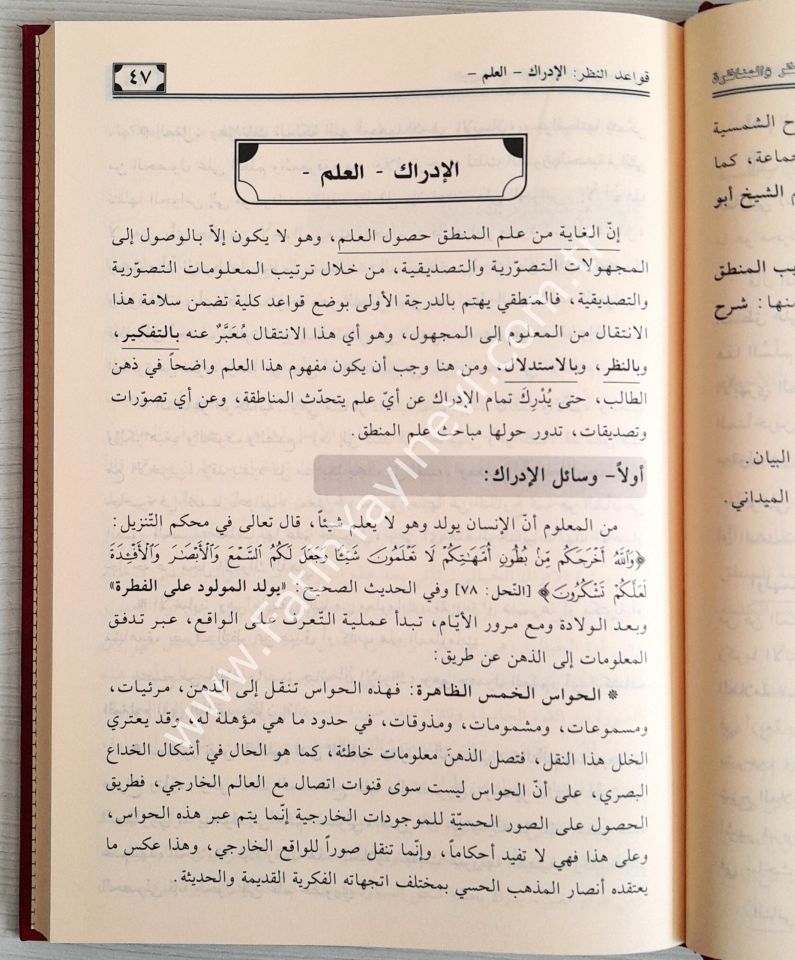 قواعد النظر: الإدراك - العلم -
٤٧
الإدراك - العلم -
إنّ الغاية من علم المنطق حصول العلم، وهو لا يكون إلاّ بالوصول إلى
المجهولات التصوّرية والتصديقية، من خلال ترتيب المعلومات التصوّرية
والتصديقية، فالمنطقي يهتم بالدرجة الأولى بوضع قواعد كلية تضمن سلامة هذا
الانتقال من المعلوم إلى المجهول، وهو أي هذا الانتقال مُعَبَّرٌ عنه بالتفكير،
وبالنظر، وبالاستدلال، ومن هنا وجب أن يكون مفهوم هذا العلم واضحاً في ذهن
الطالب، حتى يُدْرِكَ تمام الإدراك عن أيّ علم يتحدّث المناطقة، وعن أي تصوّرات
وتصديقات، تدور حولها مباحث علم المنطق.
أولاً- وسائل الإدراك:
من المعلوم أنّ الإنسان يولد وهو لا يعلم شيئاً، قال تعالى في محكم التنزيل:
﴿وَاللَّهُ أَخْرَجَكُم مِّنْ بُطُونِ أُمَّهَاتِكُمْ لَا تَعْلَمُونَ شَيْئًا وَجَعَلَ لَكُمُ السَّمْعَ وَالْأَبْصَارَ وَالْأَفْئِدَةَ
لَعَلَّكُمْ تَشْكُرُونَ﴾ [النّحل: ٧٨] وفي الحديث الصحيح: «يولد المولود على الفطرة»
وبعد الولادة ومع مرور الأيّام، تبدأ عملية التعرّف على الواقع، عبر تدفق
المعلومات إلى الذهن عن طريق:
* الحواس الخمس الظاهرة: فهذه الحواس تنقل إلى الذهن، مرئيات،
ومسموعات، ومشمومات، ومذوقات، في حدود ما هي مؤهلة له، وقد يعتري
الخلل هذا النقل، فتصل الذهنَ معلومات خاطئة، كما هو الحال في أشكال الخداع
البصري، على أنّ الحواس ليست سوى قنوات اتصال مع العالم الخارجي، فطريق
الحصول على الصور الحسيّة للموجودات الخارجية إنّما يتم عبر هذه الحواس،
وعلى هذا فهي لا تفيد أحكاماً، وإنّما تنقل صوراً للواقع الخارجي، وهذا عكس ما
يعتقده أنصار المذهب الحسي بمختلف اتجهاته الفكرية القديمة والحديثة.
www.fatihyayinevi.com.tr
والمناظرة
ح الشمسية
جماعة، كما
م الشيخ أبو
يب المنطق
منها: شرح
البيان.
الميداني.